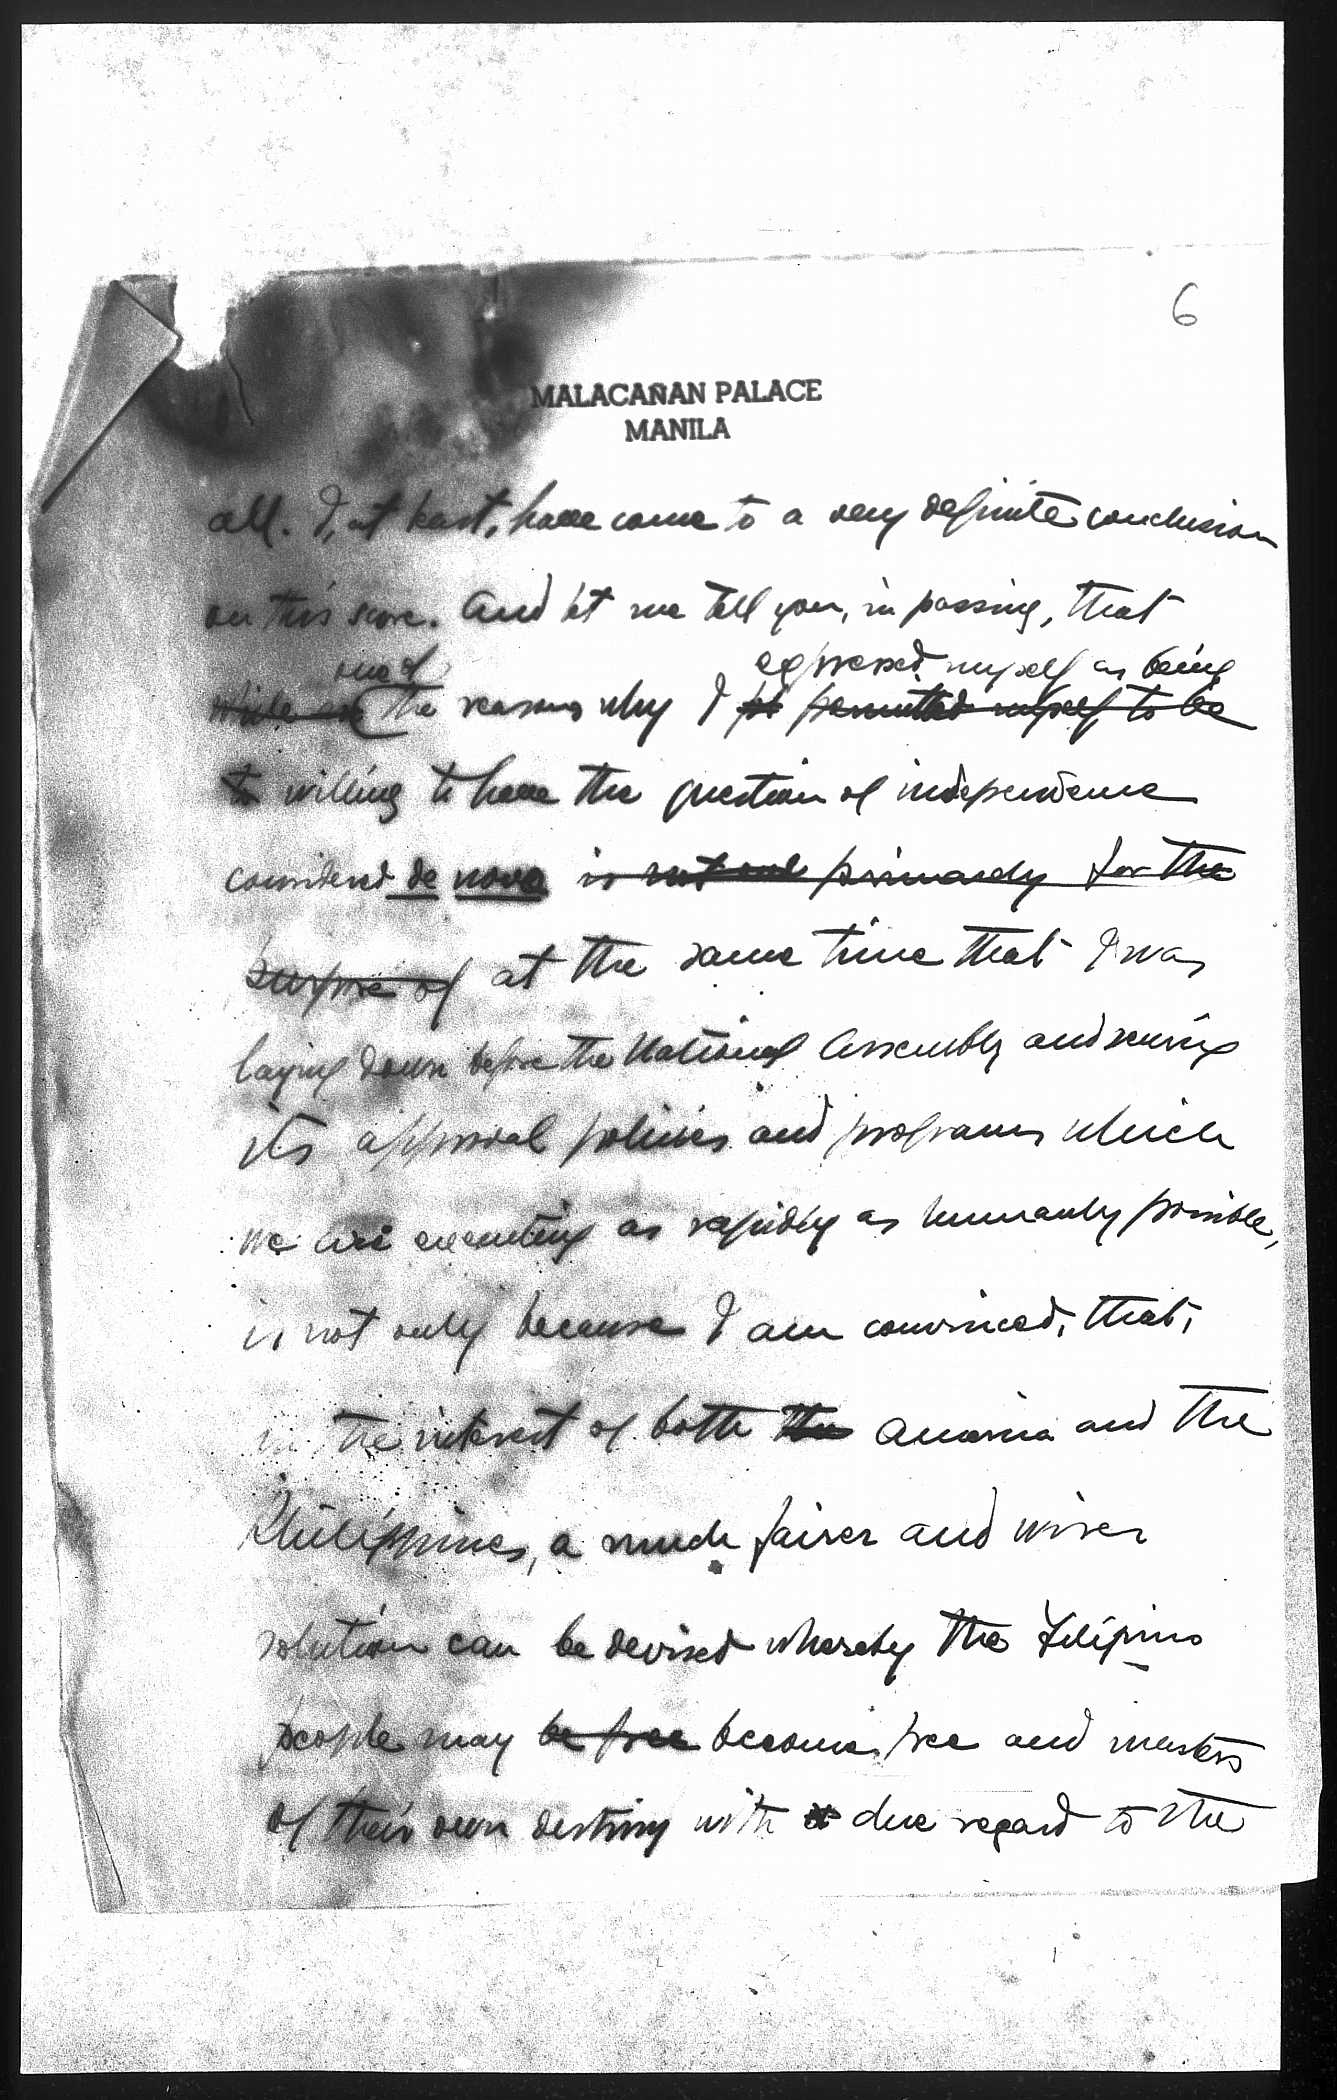 6
MALACAÑAN PALACE
MANILA
all. I, at least, have come to a very definite conclusion
on this score. And let me tell you, in passing, that
one of expressed myself as being
while the reasons why I permitted myself to be
to willing to have the question of independence
considered de novo is not only primarily for the
purpose of at the same time that I was
laying down before the National Assembly and securing
its approval policies and programs which
we are executing as rapidly as humanly possible,
is not only because I am convinced, that,
in the interest of both the America and the
Philippines, a much fairer and wiser
solution can be devised whereby the Filipino
people may be free become free and masters
of their own destiny with due regard to the